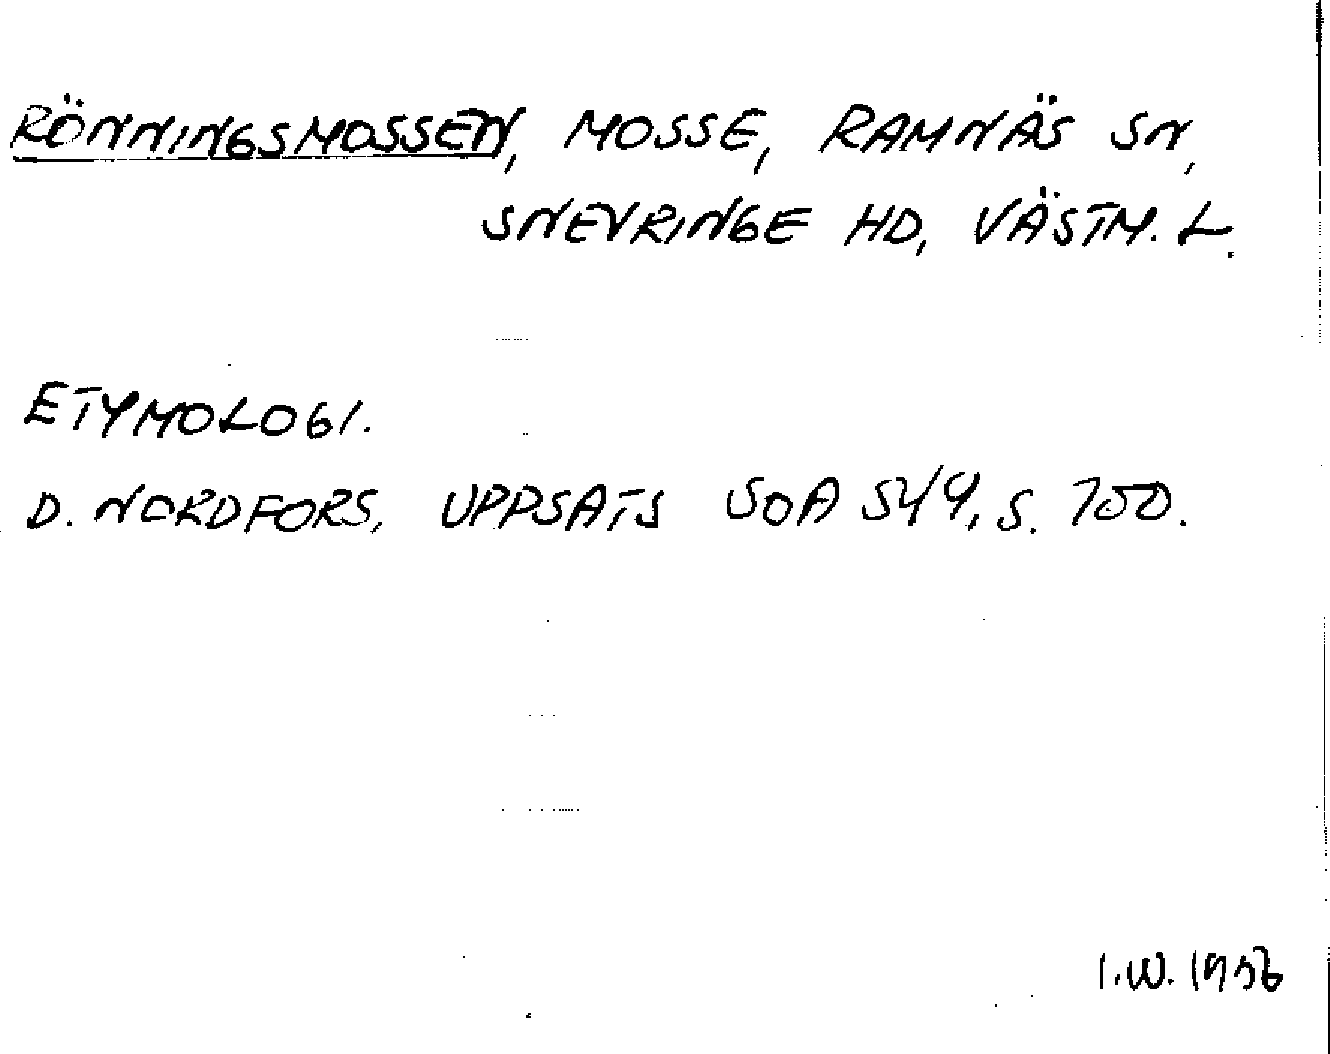 RÖNNINGSMOSSEN, MOSSE, RAMNÄS SN,
SNEVRINGE HD, VÄSTM. L.
ETYMOLOGI.
D. NORDFORS, UPPSATS SOA 544, S. 700.
I.W. 1956